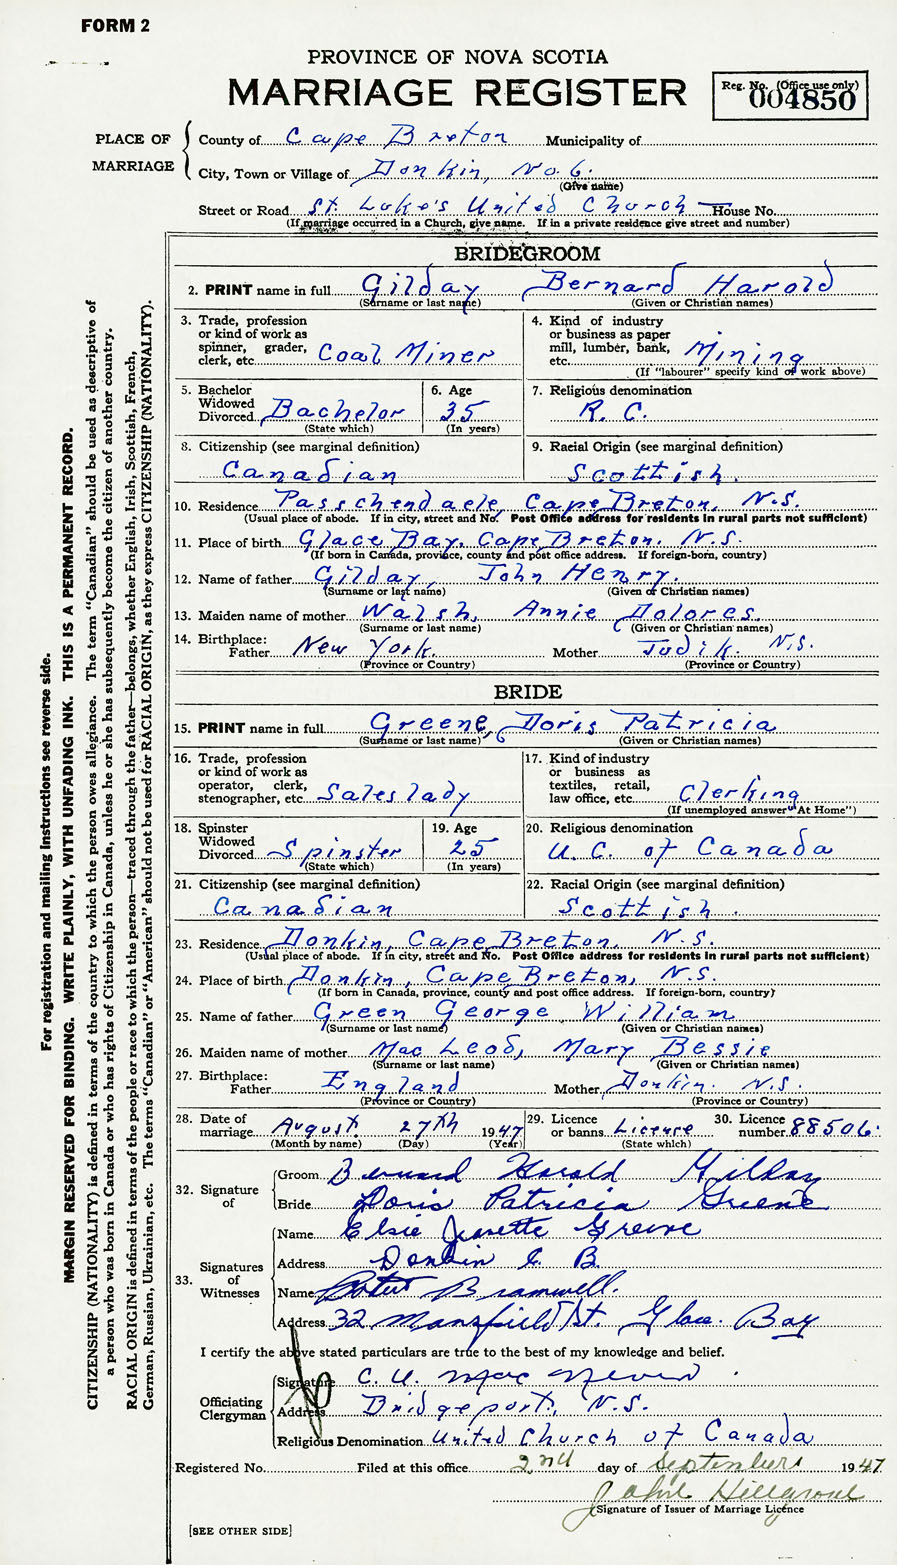 FORM 2
PROVINCE OF NOVA SCOTIA
MARRIAGE REGISTER
Reg. No. (Office use only)
004850
PLACE OF MARRIAGE
County of Cape Breton Municipality of
City, Town or Village of Donkin, No 6.
(Give name)
Street or Road St. Luke's United Church House No.
(If marriage occurred in a Church, give name. If in a private residence give street and number)
BRIDEGROOM
2. PRINT name in full Gilday Bernard Harold
(Surname or last name) (Given or Christian names)
3. Trade, profession
or kind of work as
spinner, grader,
clerk, etc. Coal Miner
4. Kind of industry
or business as paper
mill, lumber, bank,
etc. Mining
(If "labourer" specify kind of work above)
5. Bachelor
Widowed
Divorced Bachelor
(State which)
6. Age
35
(In years)
7. Religious denomination
R. C.
8. Citizenship (see marginal definition)
Canadian
9. Racial Origin (see marginal definition)
Scottish.
10. Residence Passchendaele, Cape Breton, N.S.
(Usual place of abode. If in city, street and No. Post Office address for residents in rural parts not sufficient)
11. Place of birth Glace Bay, Cape Breton. N.S.
(If born in Canada, province, county and post office address. If foreign-born, country)
12. Name of father Gilday, John Henry.
(Surname or last name) (Given or Christian names)
13. Maiden name of mother Walsh, Annie Dolores
(Surname or last name) (Given or Christian names)
14. Birthplace:
Father New York. Mother Judik N.S.
(Province or Country) (Province or Country)
BRIDE
15. PRINT name in full Greene, Doris Patricia
(Surname or last name) (Given or Christian names)
16. Trade, profession
or kind of work as
operator, clerk,
stenographer, etc. Saleslady
17. Kind of industry
or business as
textiles, retail,
law office, etc. Clerking
(If unemployed answer "At Home")
18. Spinster
Widowed
Divorced Spinster
(State which)
19. Age
25
(In years)
20. Religious denomination
U. C. of Canada
21. Citizenship (see marginal definition)
Canadian
22. Racial Origin (see marginal definition)
Scottish.
23. Residence Donkin, Cape Breton, N.S.
(Usual place of abode. If in city, street and No. Post Office address for residents in rural parts not sufficient)
24. Place of birth Donkin, Cape Breton, N.S.
(If born in Canada, province, county and post office address. If foreign-born, country)
25. Name of father Green George William
(Surname or last name) (Given or Christian names)
26. Maiden name of mother MacLeod, Mary Bessie
(Surname or last name) (Given or Christian names)
27. Birthplace:
Father England Mother Donkin. N.S.
(Province or Country) (Province or Country)
28. Date of
marriage August 27th 1947
(Month by name) (Day) (Year)
29. Licence
or banns License
(State which)
30. Licence
number 88506.
32. Signature of
Groom Bernard Harold Gilday
Bride Doris Patricia Greene
33. Signatures of Witnesses
Name Elsie Jeanette Greene
Address Donkin C. B.
Name Bramwell.
Address 32 Mansfield St. Glace Bay
I certify the above stated particulars are true to the best of my knowledge and belief.
Officiating Clergyman
Signature C. U. Mac
Address Bridgeport, N.S.
Religious Denomination United Church of Canada
Registered No. Filed at this office 2nd day of September 1947
John Hillgrove
Signature of Issuer of Marriage Licence
[SEE OTHER SIDE]
For registration and mailing instructions see reverse side.
MARGIN RESERVED FOR BINDING. WRITE PLAINLY, WITH UNFADING INK. THIS IS A PERMANENT RECORD.
CITIZENSHIP (NATIONALITY) is defined in terms of the country to which the person owes allegiance. The term "Canadian" should be used as descriptive of
a person who was born in Canada or who has rights of Citizenship in Canada, unless he or she has subsequently become the citizen of another country.
RACIAL ORIGIN is defined in terms of the people or race to which the person—traced through the father—belongs, whether English, Irish, Scottish, French,
German, Russian, Ukrainian, etc. The terms "Canadian" or "American" should not be used for RACIAL ORIGIN, as they express CITIZENSHIP (NATIONALITY).